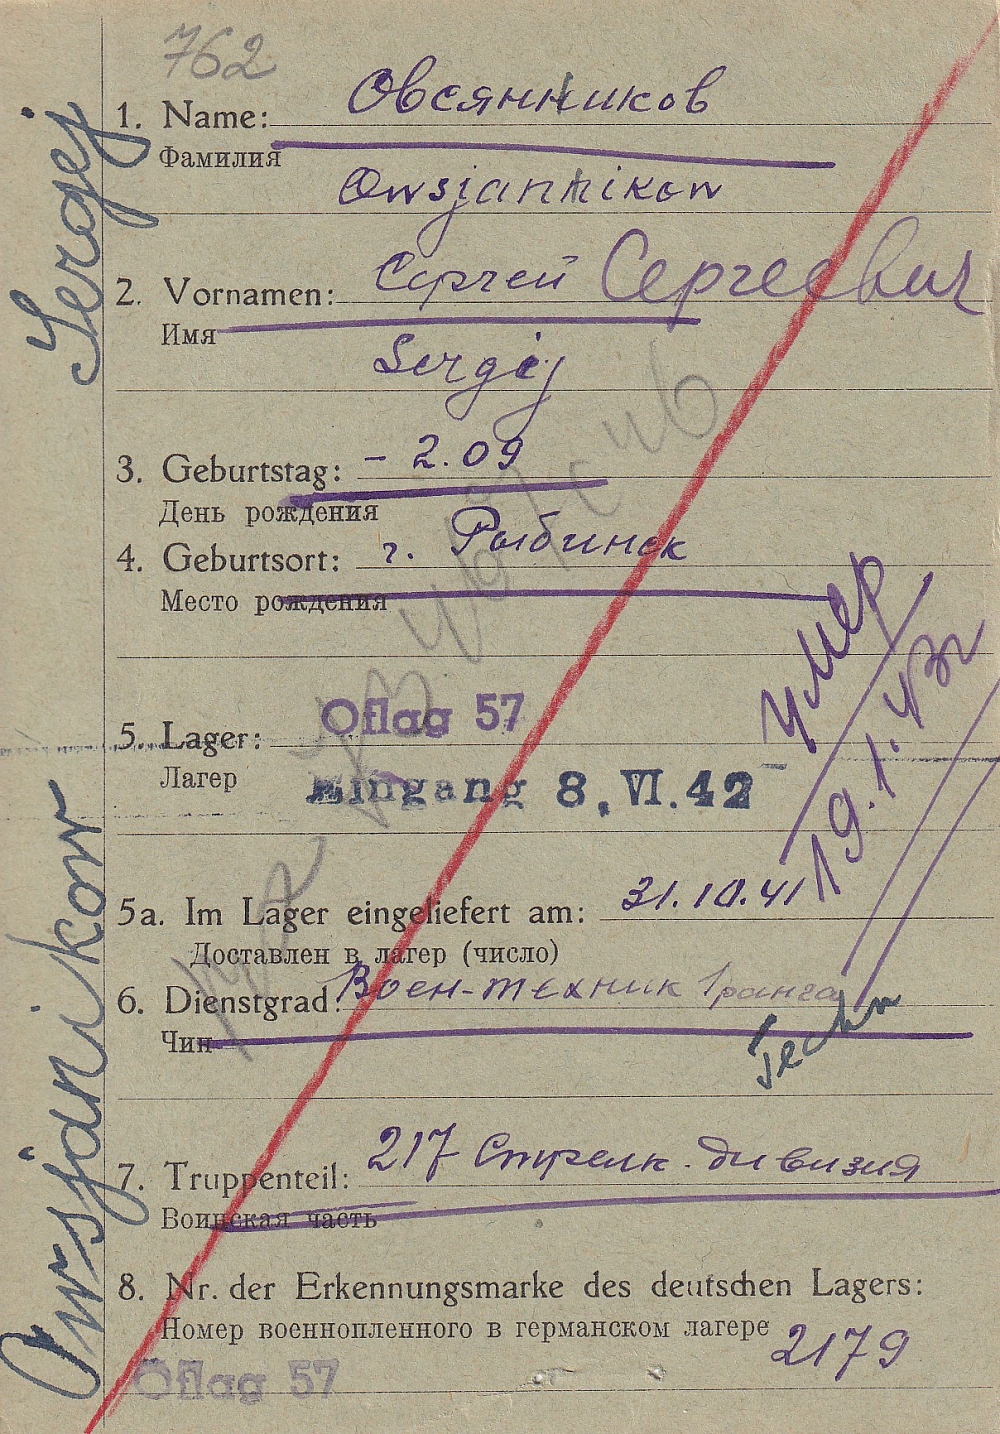 762
1. Name: Овсянников
Фамилия
Owsjannikow
2. Vornamen: Сергей Сергеевич
Имя
Sergej
3. Geburtstag: – 2.09
День рождения
4. Geburtsort: г. Рыбинск
Место рождения
5. Lager: Oflag 57
Лагер
Eingang 8. VI. 42
умер
19.1.43г
5a. Im Lager eingeliefert am: 31.10.41
Доставлен в лагер (число)
6. Dienstgrad: Воен-техник 1 ранга
Чин
Techn
7. Truppenteil: 217 Стрелк. дивизия
Воинская часть
8. Nr. der Erkennungsmarke des deutschen Lagers:
Номер военнопленного в германском лагере 2179
Oflag 57
Owsjanikow Sergej